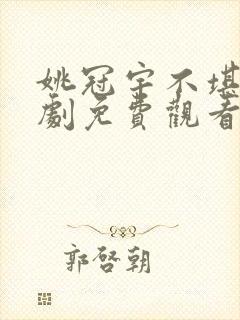 姚冠宇不堪
劇免費觀看
郭啓朝